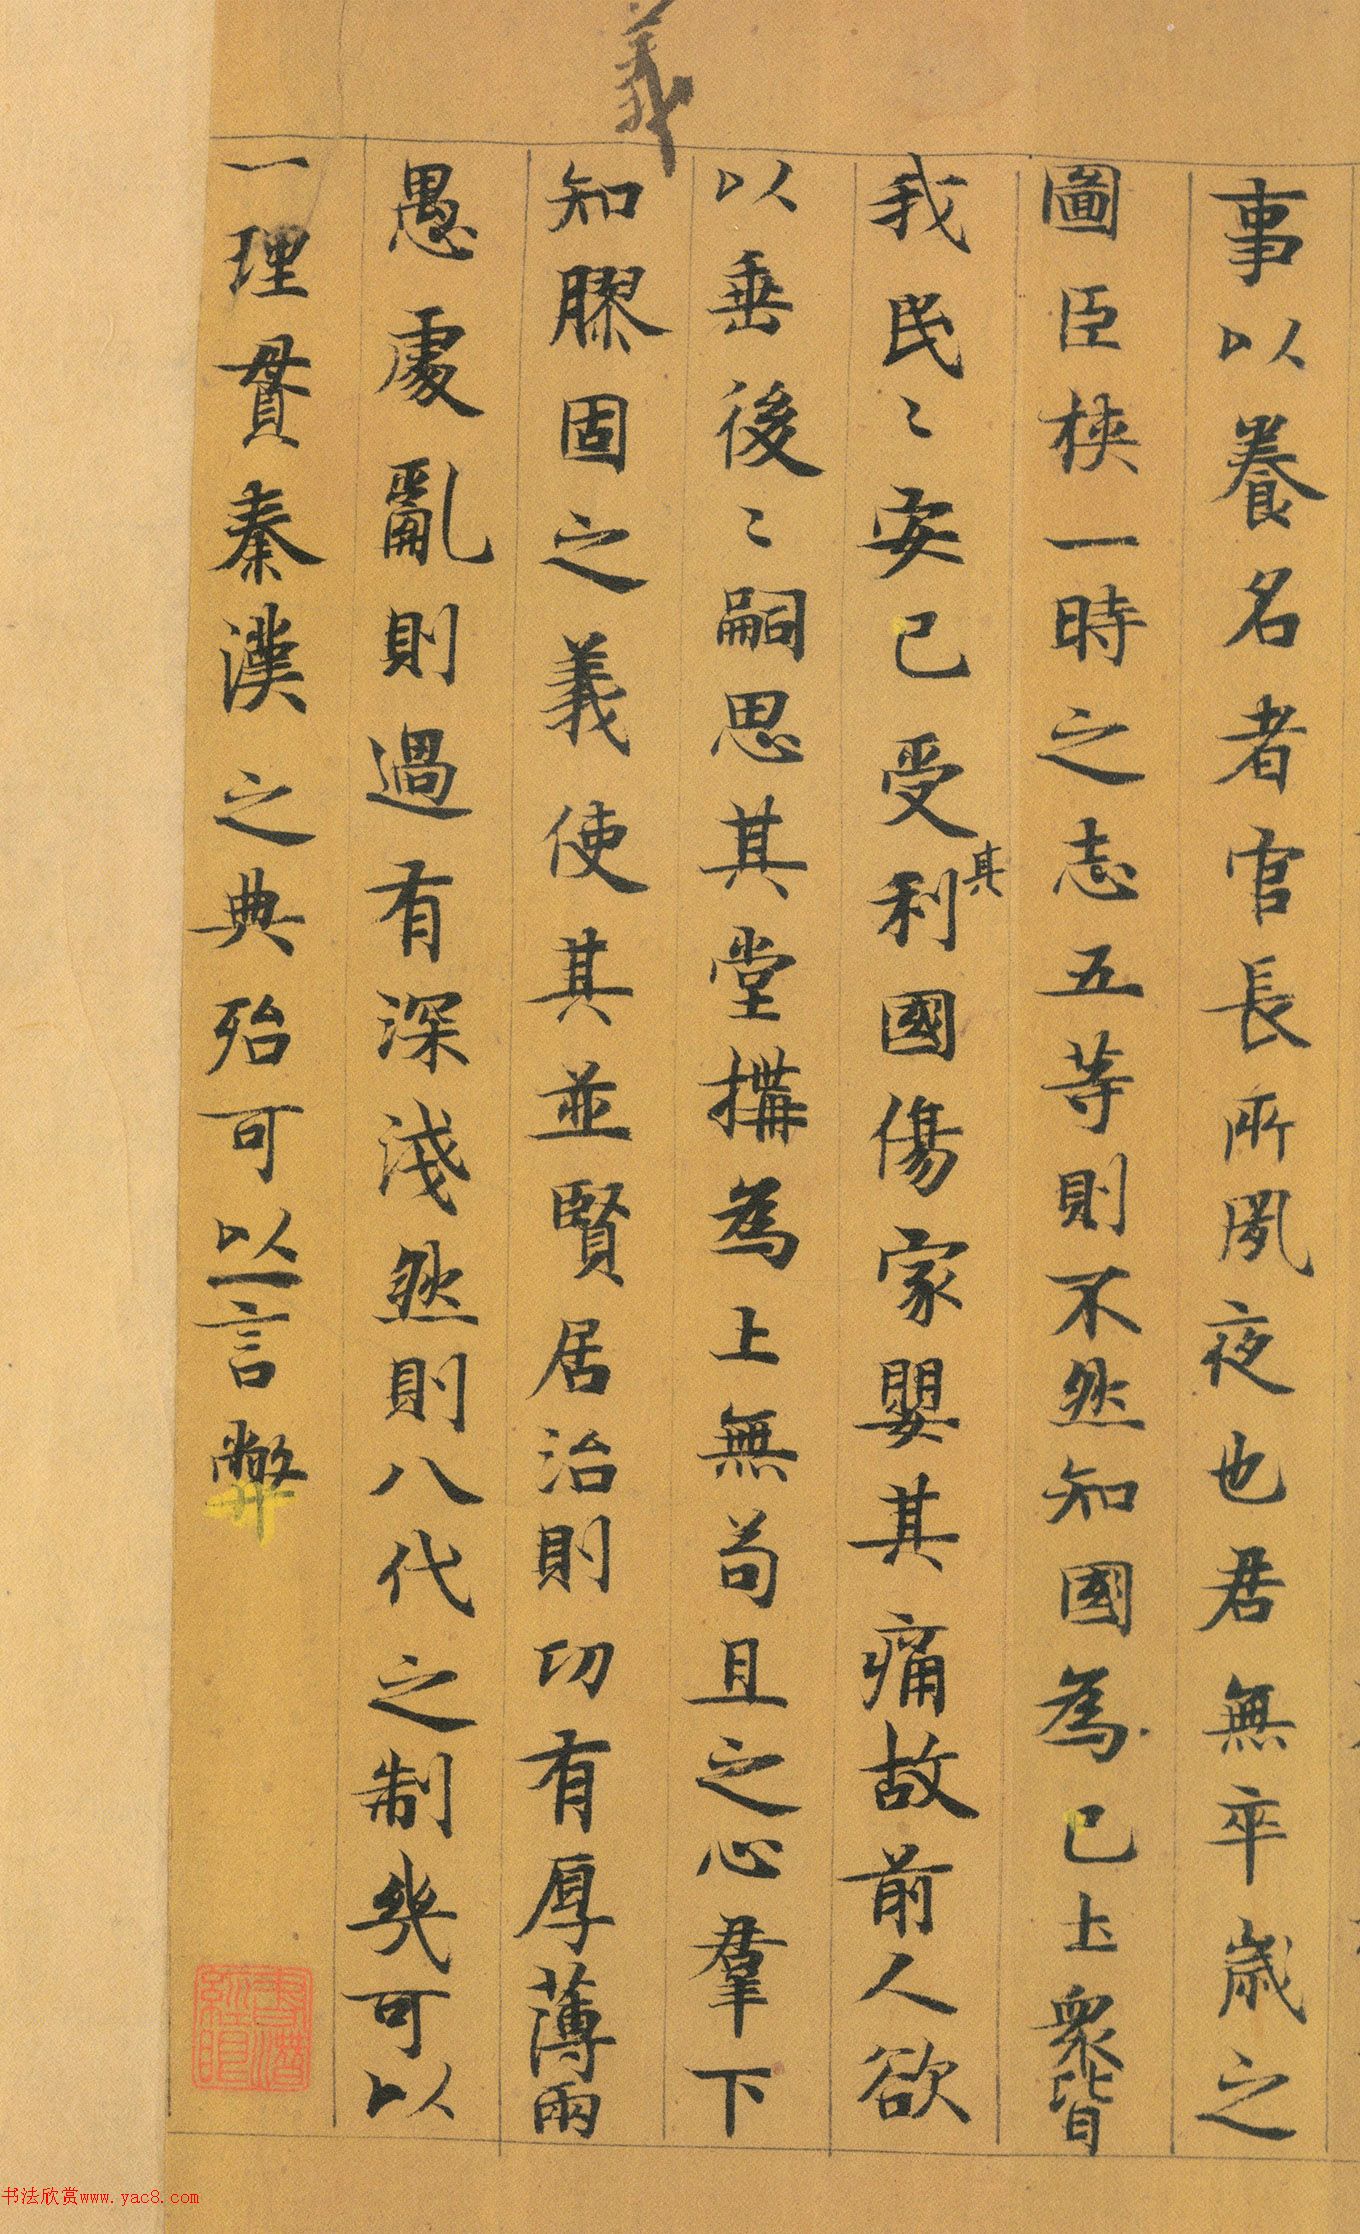 義
事以養名者官長所夙夜也君無卒歲之
圖臣挾一時之志五等則不然知國為己土衆皆
我民〻安己受利國傷家嬰其痛故前人欲
其
以垂後〻嗣思其堂搆為上無苟且之心羣下
知膠固之義使其並賢居治則功有厚薄兩
愚處亂則過有深淺然則八代之制幾可以
一理貫秦漢之典殆可以一言弊
书法欣赏www.yac8.com